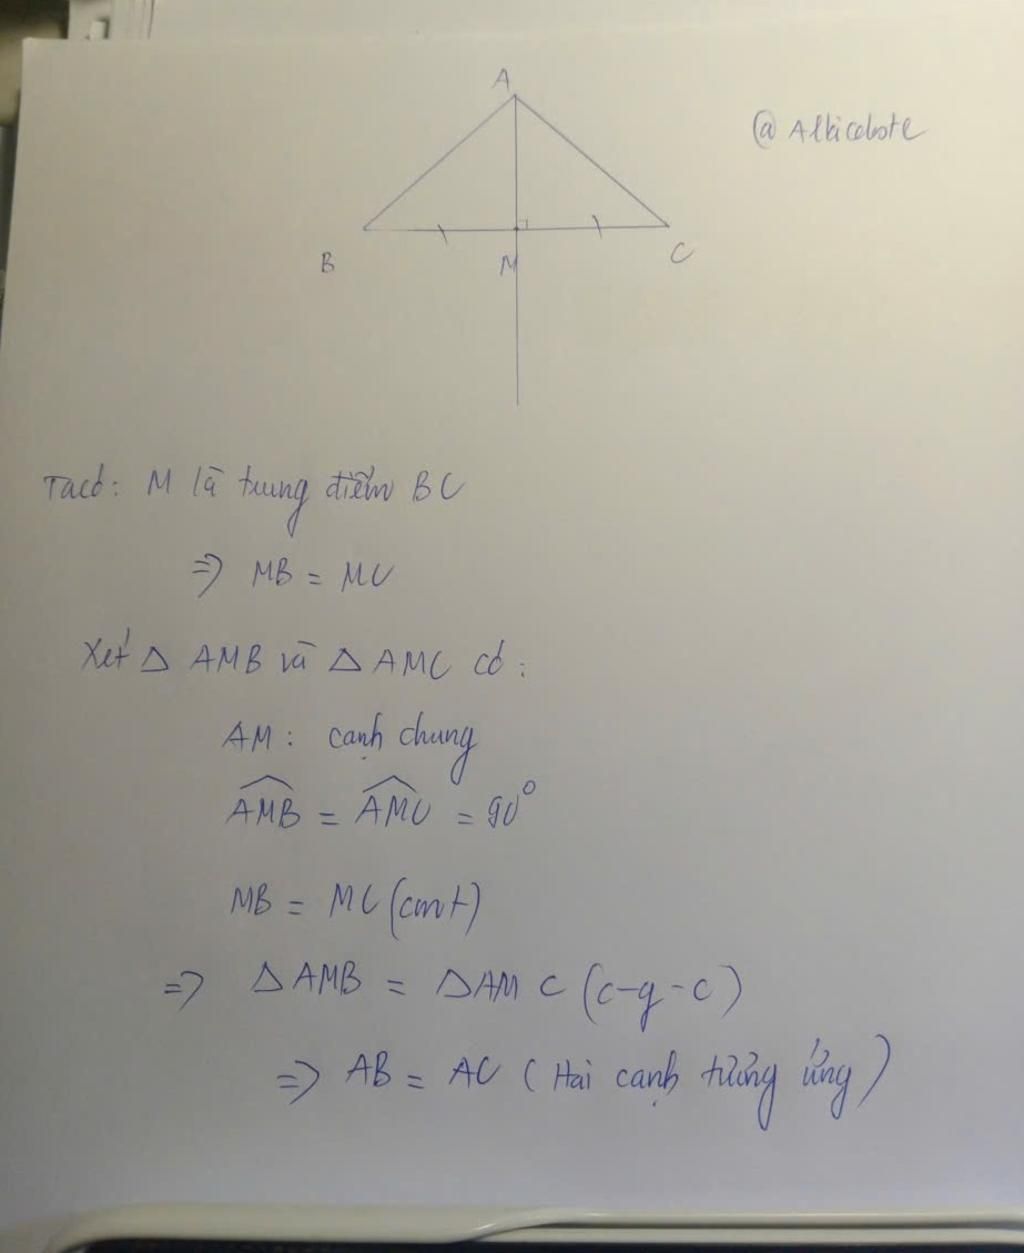 A
@ Albiceleste
B
M
C
Ta có: M là trung điểm BC
=> MB = MC
Xét △ AMB và △ AMC có:
AM: cạnh chung
\widehat{AMB} = \widehat{AMC} = 90°
MB = MC (cmt)
=> △AMB = △AMC (c-g-c)
=> AB = AC (Hai cạnh tương ứng)